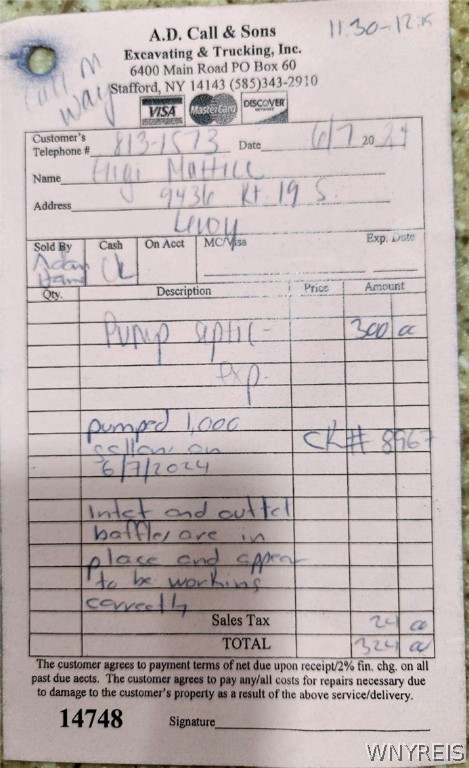 11:30-12:15
A.D. Call & Sons
Excavating & Trucking, Inc.
6400 Main Road PO Box 60
Stafford, NY 14143 (585)343-2910
Call
way
VISA MasterCard DISCOVER
Customer's
Telephone # 813-1573 Date 6/7 20 24
Name Mattice
Address 9436 Rt. 19 S.
Leroy
Sold By Cash On Acct MC/Visa Exp. Date
Adam CK
Qty. Description Price Amount
Pump septic - 300 00
exp.
pumped 1,000
gallons on CK# 8967
6/7/2024
Inlet and outlet
baffles are in
place and appear
to be working
correctly
Sales Tax 24 00
TOTAL 324 00
The customer agrees to payment terms of net due upon receipt/2% fin. chg. on all
past due accts. The customer agrees to pay any/all costs for repairs necessary due
to damage to the customer's property as a result of the above service/delivery.
14748 Signature
WNYREIS